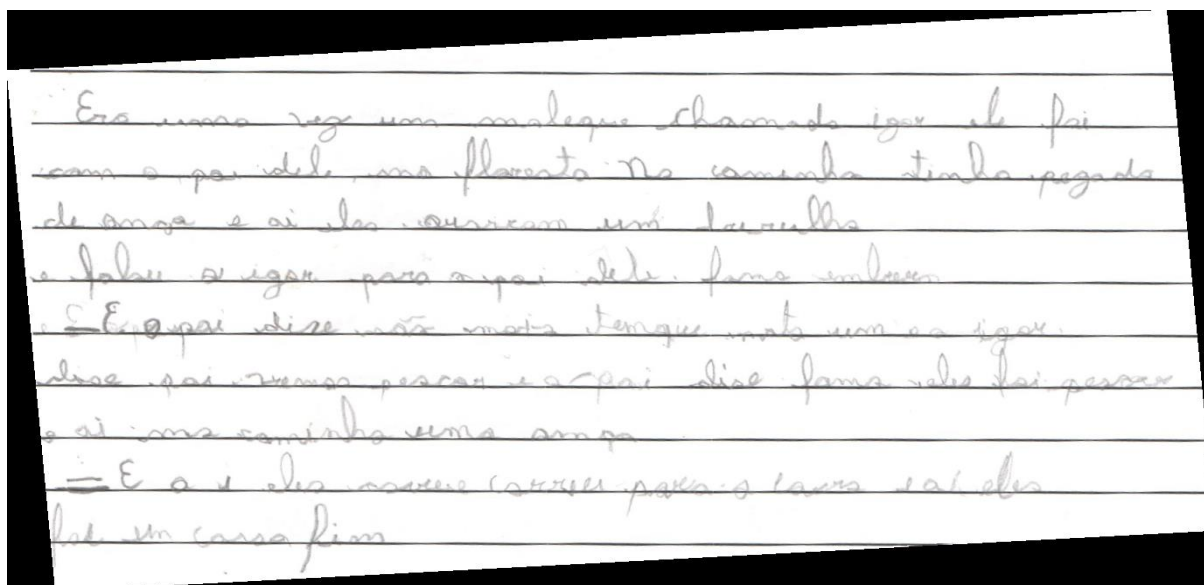 Era uma vez um moleque chamado igor ele foi
com o pai dele na floresta No caminho tinha pegada
de onça e ai eles ouviram um barulho
e falou o igor para o pai dele. famo embora
– E o pai dise não mais temque mata um e o igor
dise pai vamos pescar e o pai dise famo eles foi pescar
e ai no caminho uma onça
– E a i eles correu para a casa e ai eles
em casa fim